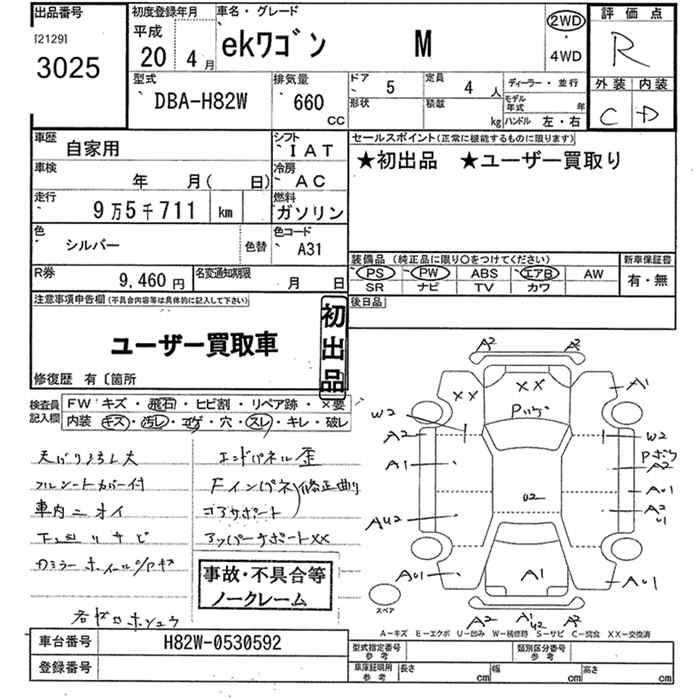 出品番号
[2129]
3025
初度登録年月
平成
20 4月
車名・グレード
ekワゴン M
2WD
・
4WD
評価点
R
外装 内装
C D
型式
DBA-H82W
排気量
660
CC
ドア 5
形状
定員 4 人
積載 kg
ディーラー・並行
モデル年式 年
ハンドル 左・右
車歴 自家用
シフト IAT
車検 年 月( 日)
冷房 AC
走行 9万5千711 km
燃料 ガソリン
色 シルバー 色替
色コード A31
R券 9,460円
名変通知期限 月 日
セールスポイント(正常に機能するものに限ります)
★初出品 ★ユーザー買取り
装備品(純正品に限り○をつけてください)
新車保証書
PS PW ABS エアB AW
SR ナビ TV カワ
有・無
後日品
注意事項申告欄(不具合内容等は具体的に記入して下さい)
初出品
ユーザー買取車
修復歴 有〔箇所
検査員記入欄
FW キズ・飛石・ヒビ割・リペア跡・×要
内装 キズ・汚レ・コゲ・穴・スレ・キレ・破レ
シートカバー付
車内ニオイ
エンドパネル歪
コアサポート
アッパーサポートXX
事故・不具合等
ノークレーム
A2 A2
XX XX A1
W2 W2
A2 A2
A1
AU1
AU2 A2
U2
AU1 A1 AU1
A2 A1 A2
U2
スペア
A-キズ E-エクボ U-凹み W-補修跡 S-サビ C-腐食 XX-交換済
車台番号 H82W-0530592
登録番号
型式指定番号
参考
類別区分番号
参考
車庫証明用
参考
長さ cm 幅 cm 高さ cm